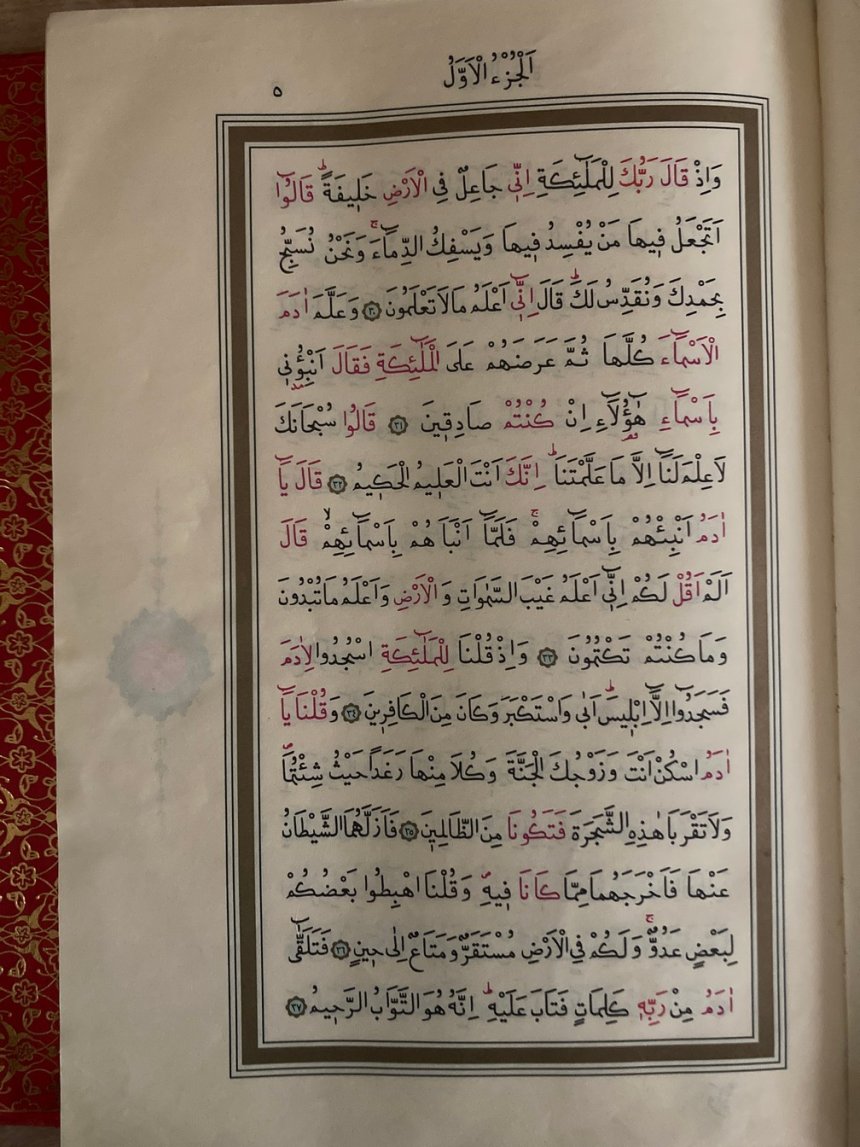 اَلْجُزْءُ الْاَوَّلُ
٥
وَاِذْ قَالَ رَبُّكَ لِلْمَلٰٓئِكَةِ اِنّ۪ي جَاعِلٌ فِي الْاَرْضِ خَل۪يفَةًۜ قَالُٓوا
اَتَجْعَلُ ف۪يهَا مَنْ يُفْسِدُ ف۪يهَا وَيَسْفِكُ الدِّمَٓاءَۚ وَنَحْنُ نُسَبِّحُ
بِحَمْدِكَ وَنُقَدِّسُ لَكَۜ قَالَ اِنّ۪ٓي اَعْلَمُ مَا لَا تَعْلَمُونَ ﴿٣٠﴾ وَعَلَّمَ اٰدَمَ
الْاَسْمَٓاءَ كُلَّهَا ثُمَّ عَرَضَهُمْ عَلَى الْمَلٰٓئِكَةِ فَقَالَ اَنْبِؤُ۫ن۪ي
بِاَسْمَٓاءِ هٰٓؤُ۬لَٓاءِ اِنْ كُنْتُمْ صَادِق۪ينَ ﴿٣١﴾ قَالُوا سُبْحَانَكَ
لَا عِلْمَ لَنَٓا اِلَّا مَا عَلَّمْتَنَاۜ اِنَّكَ اَنْتَ الْعَل۪يمُ الْحَك۪يمُ ﴿٣٢﴾ قَالَ يَٓا
اٰدَمُ اَنْبِئْهُمْ بِاَسْمَٓائِهِمْۚ فَلَمَّٓا اَنْبَاَهُمْ بِاَسْمَٓائِهِمْۙ قَالَ
اَلَمْ اَقُلْ لَكُمْ اِنّ۪ٓي اَعْلَمُ غَيْبَ السَّمٰوَاتِ وَالْاَرْضِ وَاَعْلَمُ مَا تُبْدُونَ
وَمَا كُنْتُمْ تَكْتُمُونَ ﴿٣٣﴾ وَاِذْ قُلْنَا لِلْمَلٰٓئِكَةِ اسْجُدُوا لِاٰدَمَ
فَسَجَدُٓوا اِلَّٓا اِبْل۪يسَۜ اَبٰى وَاسْتَكْبَرَ وَكَانَ مِنَ الْكَافِر۪ينَ ﴿٣٤﴾ وَقُلْنَا يَٓا
اٰدَمُ اسْكُنْ اَنْتَ وَزَوْجُكَ الْجَنَّةَ وَكُلَا مِنْهَا رَغَدًا حَيْثُ شِئْتُمَاۖ
وَلَا تَقْرَبَا هٰذِهِ الشَّجَرَةَ فَتَكُونَا مِنَ الظَّالِم۪ينَ ﴿٣٥﴾ فَاَزَلَّهُمَا الشَّيْطَانُ
عَنْهَا فَاَخْرَجَهُمَا مِمَّا كَانَا ف۪يهِۖ وَقُلْنَا اهْبِطُوا بَعْضُكُمْ
لِبَعْضٍ عَدُوٌّۚ وَلَكُمْ فِي الْاَرْضِ مُسْتَقَرٌّ وَمَتَاعٌ اِلٰى ح۪ينٍ ﴿٣٦﴾ فَتَلَقّٰٓى
اٰدَمُ مِنْ رَبِّه۪ كَلِمَاتٍ فَتَابَ عَلَيْهِۜ اِنَّهُ هُوَ التَّوَّابُ الرَّح۪يمُ ﴿٣٧﴾